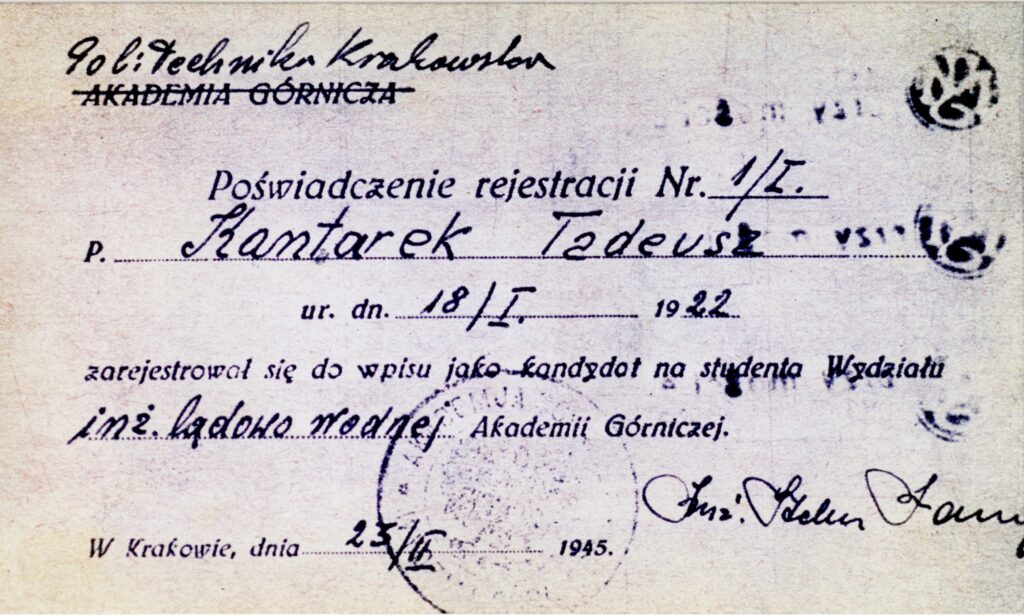 Politechnika Krakowska
AKADEMIA GÓRNICZA
Poświadczenie rejestracji Nr. 1/I.
P. Kantarek Tadeusz
ur. dn. 18/I. 1922
zarejestrował się do wpisu jako kandydat na studenta Wydziału
inż. lądowo wodnej Akademii Górniczej.
Inż. Stefan
W Krakowie, dnia 23/II 1945.